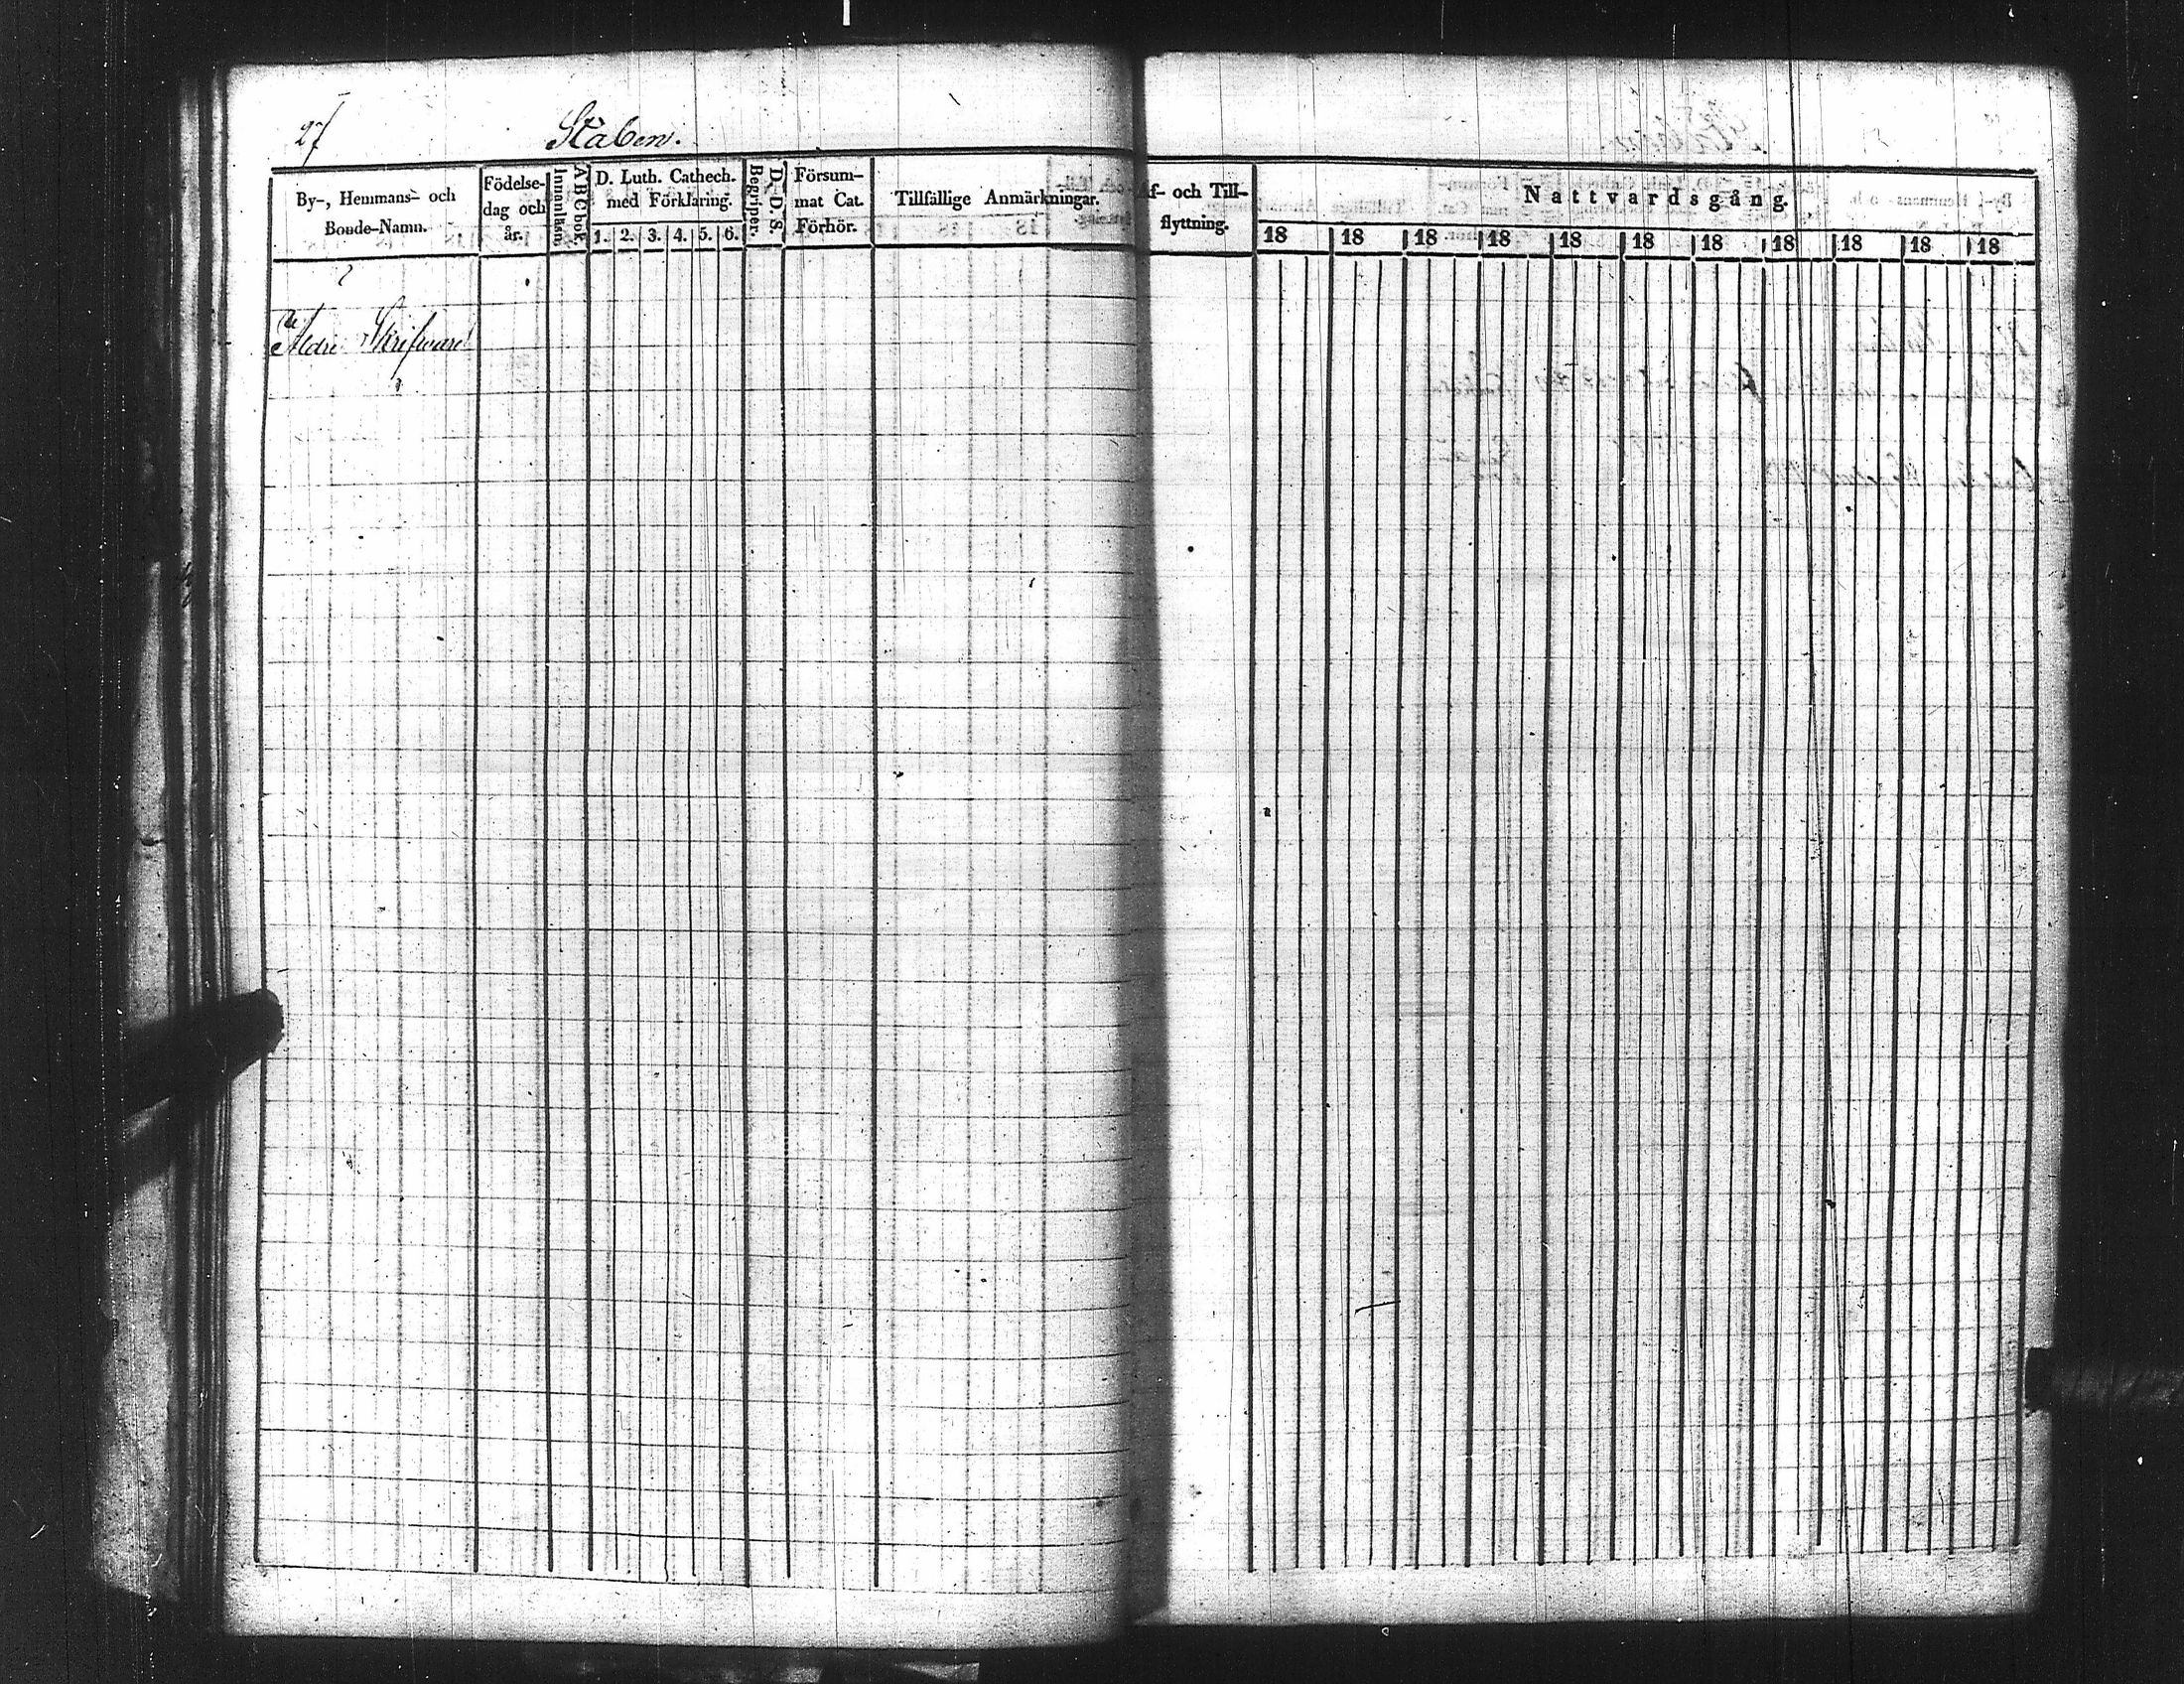 27
Staben.
By-, Hemmans- och Bonde-Namn.
Födelse-dag och år.
Innanläsn.
ABCbok.
D. Luth. Cathech. med Förklaring.
1. 2. 3. 4. 5. 6.
Begriper.
D. D. S.
Försum-mat Cat. Förhör.
Tillfällige Anmärkningar.
Af- och Till-flyttning.
Nattvardsgång.
18 18 18 18 18 18 18 18 18 18 18
Äldre Skrifware